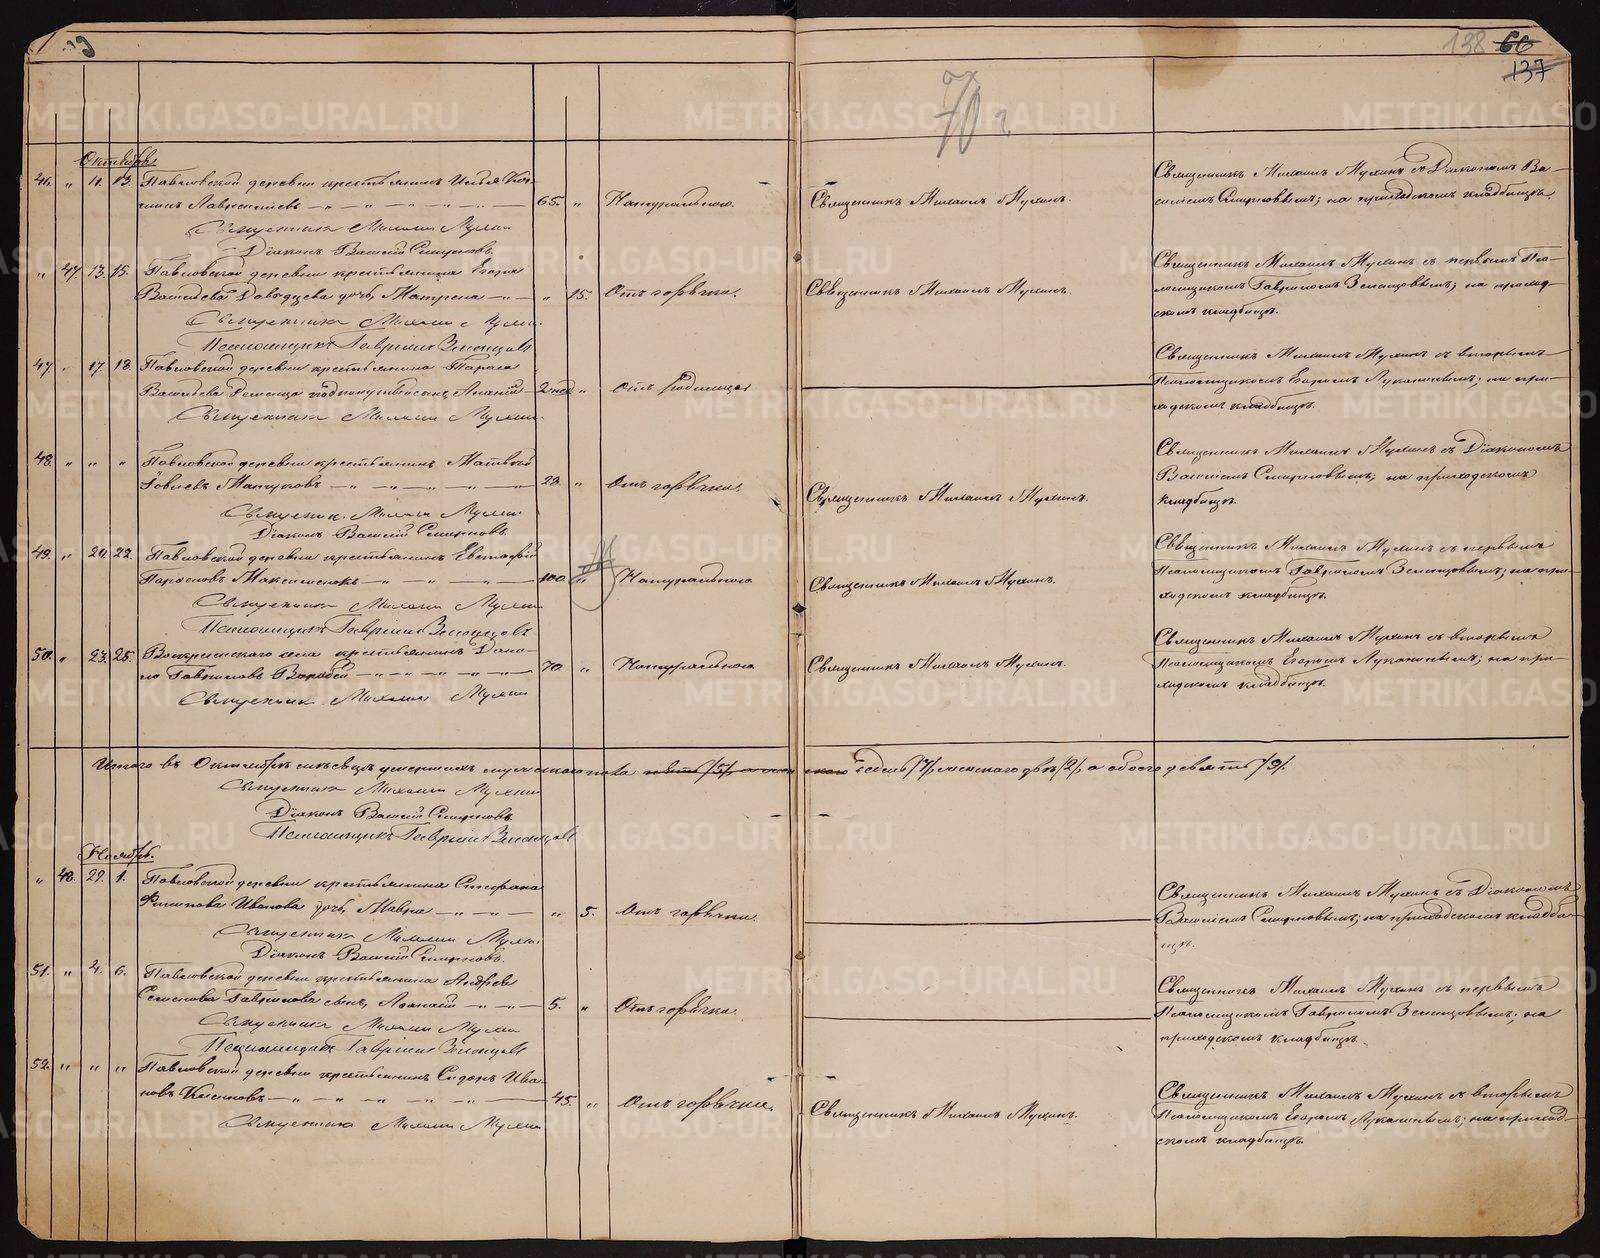 138 66
137
70 2
Октябрь.
46. " 11. 13. Павловской деревни крестьянинъ Илья
Лаврентьевъ 65. " Натурально. Священникъ Михаилъ Мухинъ. Священникъ Михаилъ Мухинъ съ Діакономъ Ва-
силіемъ Смирновымъ; на приходскомъ кладбищѣ.
Священникъ Михаилъ Мухинъ
Діаконъ Василій Смирновъ.
" 47. 13. 15. Павловской деревни крестьянина Егора
Васильева Давыдцева дочь Матрена " 15. Отъ горячки. Священникъ Михаилъ Мухинъ. Священникъ Михаилъ Мухинъ съ первымъ Пса-
ломщикомъ Гавріиломъ Зеленцовымъ; на приход-
скомъ кладбищѣ.
Священникъ Михаилъ Мухинъ
Псаломщикъ Гавріилъ Зеленцовъ
47. " 17. 18. Павловской деревни крестьянина Тараса
Васильева сынъ Ананій 2 нед " Отъ родимца Священникъ Михаилъ Мухинъ съ вторымъ
Псаломщикомъ Егоромъ Лукановымъ; на при-
ходскомъ кладбищѣ.
Священникъ Михаилъ Мухинъ
48. " " " Павловской деревни крестьянинъ Матвей
Іовлевъ 28. " Отъ горячки. Священникъ Михаилъ Мухинъ. Священникъ Михаилъ Мухинъ съ Діакономъ
Василіемъ Смирновымъ; на приходскомъ
кладбищѣ.
Священникъ Михаилъ Мухинъ
Діаконъ Василій Смирновъ.
49. " 20. 22. Павловской деревни крестьянинъ Евстафій
100. " Натурально Священникъ Михаилъ Мухинъ. Священникъ Михаилъ Мухинъ съ первымъ
Псаломщикомъ Гавріиломъ Зеленцовымъ; на при-
ходскомъ кладбищѣ.
Священникъ Михаилъ Мухинъ
Псаломщикъ Гавріилъ Зеленцовъ
50. " 23. 25. Воскресенскаго села крестьянинъ Дани-
ло Гавриловъ Воробей 70. " Натурально Священникъ Михаилъ Мухинъ. Священникъ Михаилъ Мухинъ съ вторымъ
Псаломщикомъ Егоромъ Лукановымъ; на при-
ходскомъ кладбищѣ.
Священникъ Михаилъ Мухинъ
Итого въ Октябрѣ мѣсяцѣ умершихъ мужескаго пола пять /5/, а женскаго седмь /7/ женскаго двѣ /2/, а обоего девять /9/.
Священникъ Михаилъ Мухинъ
Діаконъ Василій Смирновъ.
Псаломщикъ Гавріилъ Зеленцовъ
Ноябрь.
" 48. 29. 1. Павловской деревни крестьянина Стефана
Филипова Иванова дочь Мавра " 5. Отъ горячки. Священникъ Михаилъ Мухинъ съ Діакономъ
Василіемъ Смирновымъ; на приходскомъ кладби-
щѣ.
Священникъ Михаилъ Мухинъ
Діаконъ Василій Смирновъ.
51. " 4. 6. Павловской деревни крестьянина Андрея
Семенова Гаврилова сынъ Афанасій 5. " Отъ горячки. Священникъ Михаилъ Мухинъ съ первымъ
Псаломщикомъ Гавріиломъ Зеленцовымъ; на
приходскомъ кладбищѣ.
Священникъ Михаилъ Мухинъ
Псаломщикъ Гавріилъ Зеленцовъ
52. " " " Павловской деревни крестьянинъ Сидоръ Ива-
новъ 45. " Отъ горячки. Священникъ Михаилъ Мухинъ. Священникъ Михаилъ Мухинъ съ вторымъ
Псаломщикомъ Егоромъ Лукановымъ; на приход-
скомъ кладбищѣ.
Священникъ Михаилъ Мухинъ
METRIKI.GASO-URAL.RU